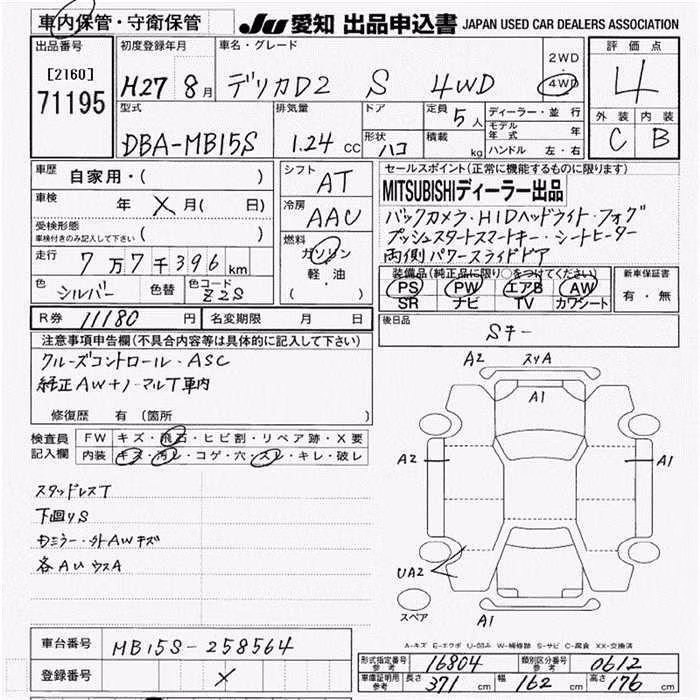 車内保管・守衛保管
JU 愛知 出品申込書 JAPAN USED CAR DEALERS ASSOCIATION
出品番号
[2160]
71195
初度登録年月
H27 8月
車名・グレード
デリカD2 S 4WD
2WD
・
4WD
評価点
4
外装 内装
C B
型式
DBA-MB15S
排気量
1.24 CC
ドア
形状
ハコ
定員 5人
積載 kg
ディーラー・並行
モデル年式 年
ハンドル 左・右
車歴
自家用・( )
車検
年 X 月( 日)
受検形態
車検付きのみ記入して下さい ( )
走行
7万7千396km
色
シルバー
色替
色コード
Z2S
シフト
AT
冷房
AAC
燃料
ガソリン
軽・油
( )
セールスポイント(正常に機能するものに限ります)
MITSUBISHIディーラー出品
バックカメラ・HIDヘッドライト・フォグ
プッシュスタートスマートキー・シートヒーター
両側パワースライドドア
装備品(純正品に限り○をつけてください)
PS PW エアB AW
SR ナビ TV カワシート
新車保証書
有・無
R券 11180円
名変期限 月 日
後日品
Sキー
注意事項申告欄(不具合内容等は具体的に記入して下さい)
クルーズコントロール・ASC
純正AW+ノーマルT車内
修復歴 有(箇所 )
検査員
記入欄
FW キズ・飛石・ヒビ割・リペア跡・X要
内装 キズ・汚レ・コゲ・穴・スレ・キレ・破レ
スタッドレスT
下廻りS
ミラー・外AWキズ
各AUウスA
A2 スリA
A1
A2
A1
UA2
スペア
A1
A-キズ E-エクボ U-凹み W-補修跡 S-サビ C-腐食 XX-交換済
車台番号
MB15S-258564
登録番号
X
形式指定番号
参考
16804
類別区分番号
参考
0612
車庫証明用
参考
長さ 371 cm 幅 162 cm 高さ 176 cm